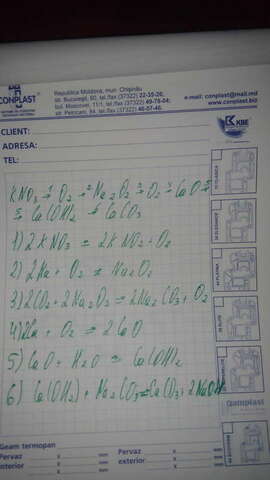 CONPLAST
Republica Moldova, mun. Chişinău
str. Bucureşti, 60, tel./fax (37322) 22-35-26;
bd. Moscovei, 11/1, tel./fax (37322) 49-78-04;
str. Petricani, 84, tel./fax (37322) 46-57-46.
e-mail: conplast@mail.md
www.conplast.biz
KBE
CLIENT:
ADRESA:
TEL:
KNO3 → O2 → Na2O2 → O2 → CaO →
→ Ca(OH)2 → CaCO3
1) 2KNO3 = 2KNO2 + O2
2) 2Na + O2 = Na2O2
3) 2CO2 + 2Na2O2 = 2Na2CO3 + O2
4) 2Ca + O2 = 2CaO
5) CaO + H2O = Ca(OH)2
6) Ca(OH2) + Na2CO3 = CaCO3 + 2NaOH
conplast
Geam termopan
Pervaz x mm
interior x mm
x mm
Pervaz x mm
exterior x mm
x mm